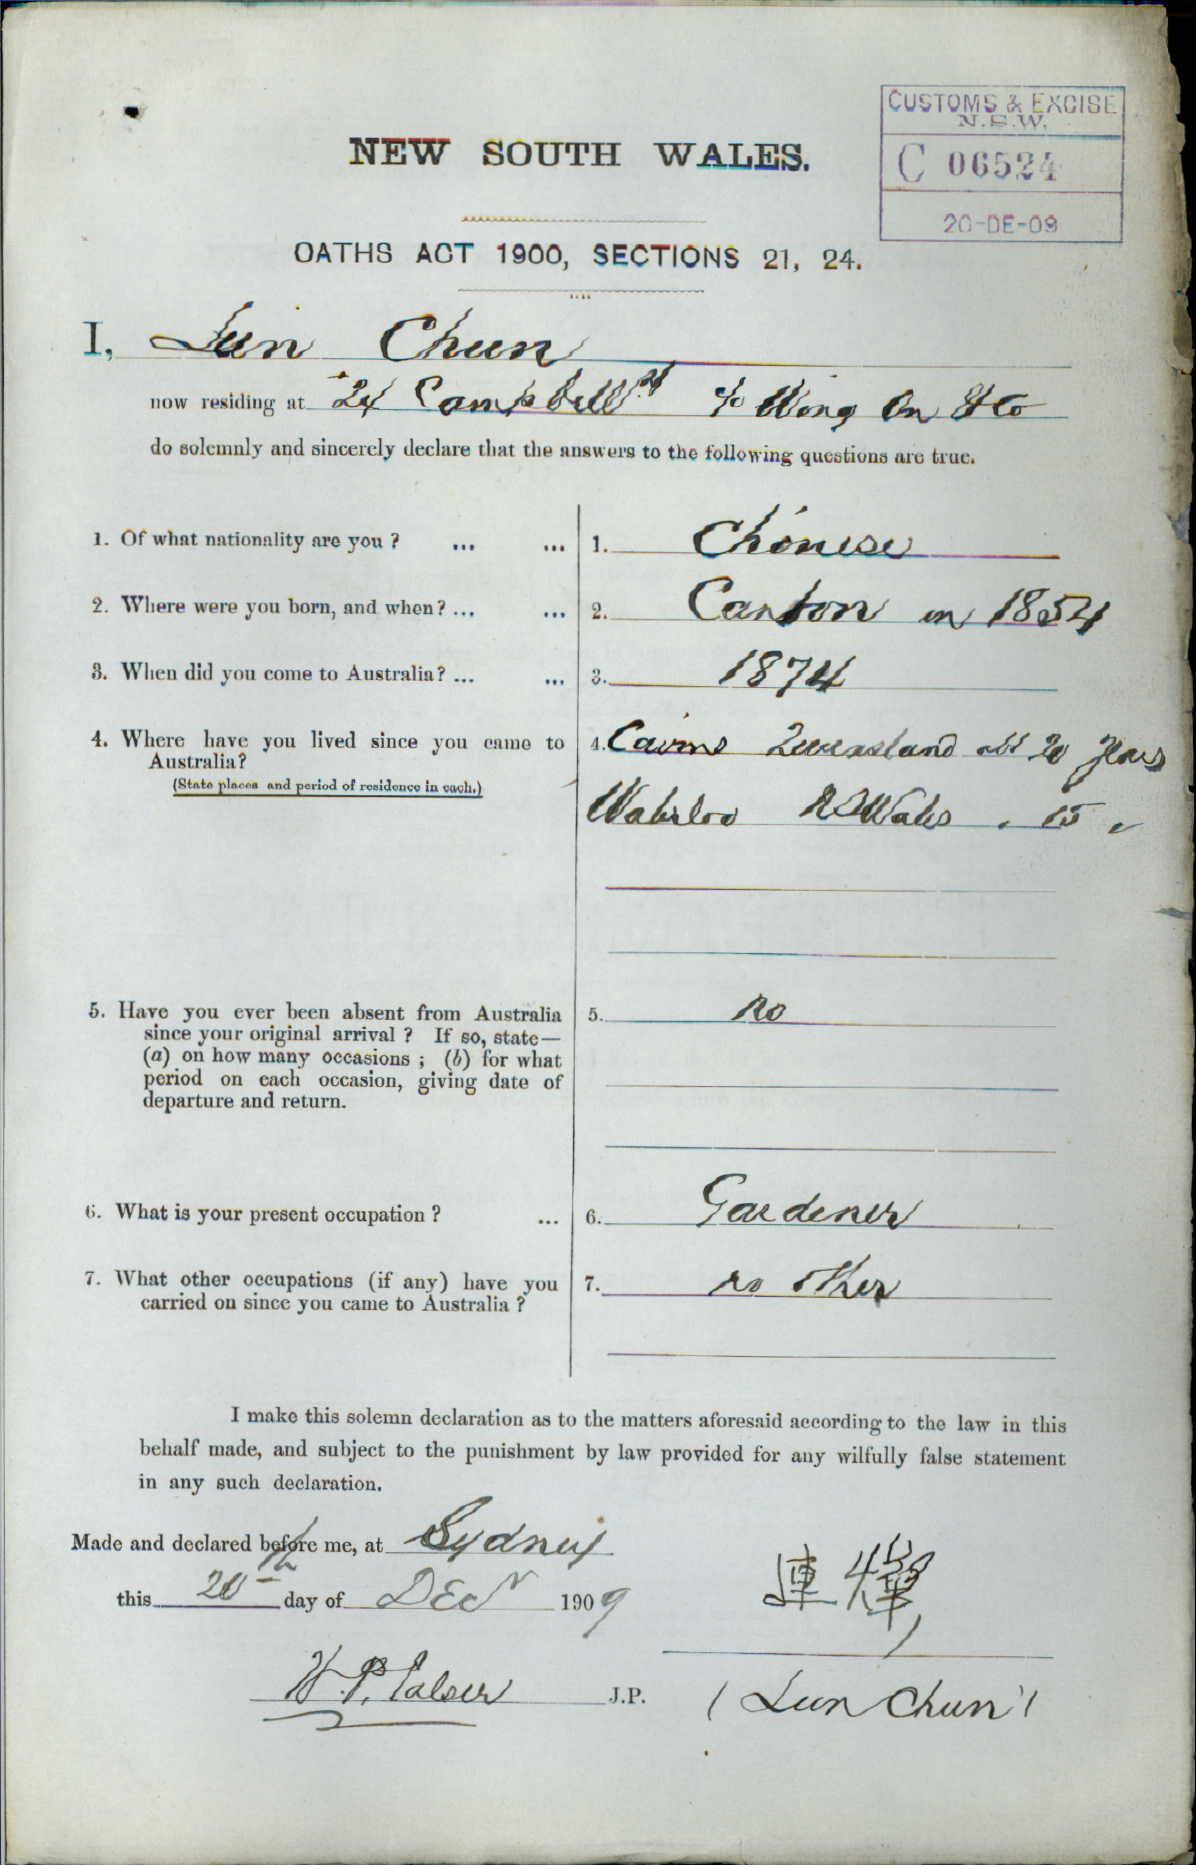 CUSTOMS & EXCISE
N.S.W.
C 06524
20-DE-09
NEW SOUTH WALES.
OATHS ACT 1900, SECTIONS 21, 24.
I, Lun Chun
now residing at 24 Campbell St c/o Wong On & Co
do solemnly and sincerely declare that the answers to the following questions are true.
1. Of what nationality are you ? ... ... 1. Chinese
2. Where were you born, and when? ... ... 2. Canton in 1854
3. When did you come to Australia? ... ... 3. 1874
4. Where have you lived since you came to 4. Cairns Queensland abt 20 years
Australia?
(State places and period of residence in each.)
Waterloo NSWales " 15 "
5. Have you ever been absent from Australia 5. no
since your original arrival ? If so, state—
(a) on how many occasions ; (b) for what
period on each occasion, giving date of
departure and return.
6. What is your present occupation ? ... 6. Gardener
7. What other occupations (if any) have you 7. no other
carried on since you came to Australia ?
I make this solemn declaration as to the matters aforesaid according to the law in this
behalf made, and subject to the punishment by law provided for any wilfully false statement
in any such declaration.
Made and declared before me, at Sydney
this 20th day of Decr 1909
連
W. P. J.P. (Lun Chun)